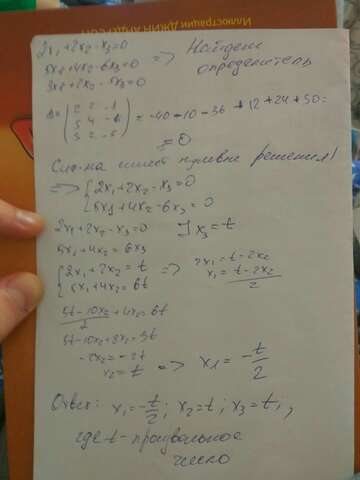 Иллюстрации ДЖИН АНДЕРСОН
2x₁+2x₂-x₃=0
5x₁+4x₂-6x₃=0 => Найдем
3x₁+2x₂-5x₃=0 определитель
Δ=(2 2 -1
5 4 -6
3 2 -5) = -40-10-36+12+24+50=
=0
Сис-ма имеет нулевые решения!
=> {2x₁+2x₂-x₃=0
5x₁+4x₂-6x₃=0
2x₁+2x₂-x₃=0 ] x₃=t
5x₁+4x₂=6x₃
{2x₁+2x₂=t => 2x₁=t-2x₂
5x₁+4x₂=6t x₁=(t-2x₂)/2
(5t-10x₂)/2+4x₂=6t
5t-10x₂+8x₂=3t
-2x₂=-2t
x₂=t => x₁=-t/2
Ответ: x₁=-t/2; x₂=t; x₃=t,
где t-произвольное
число